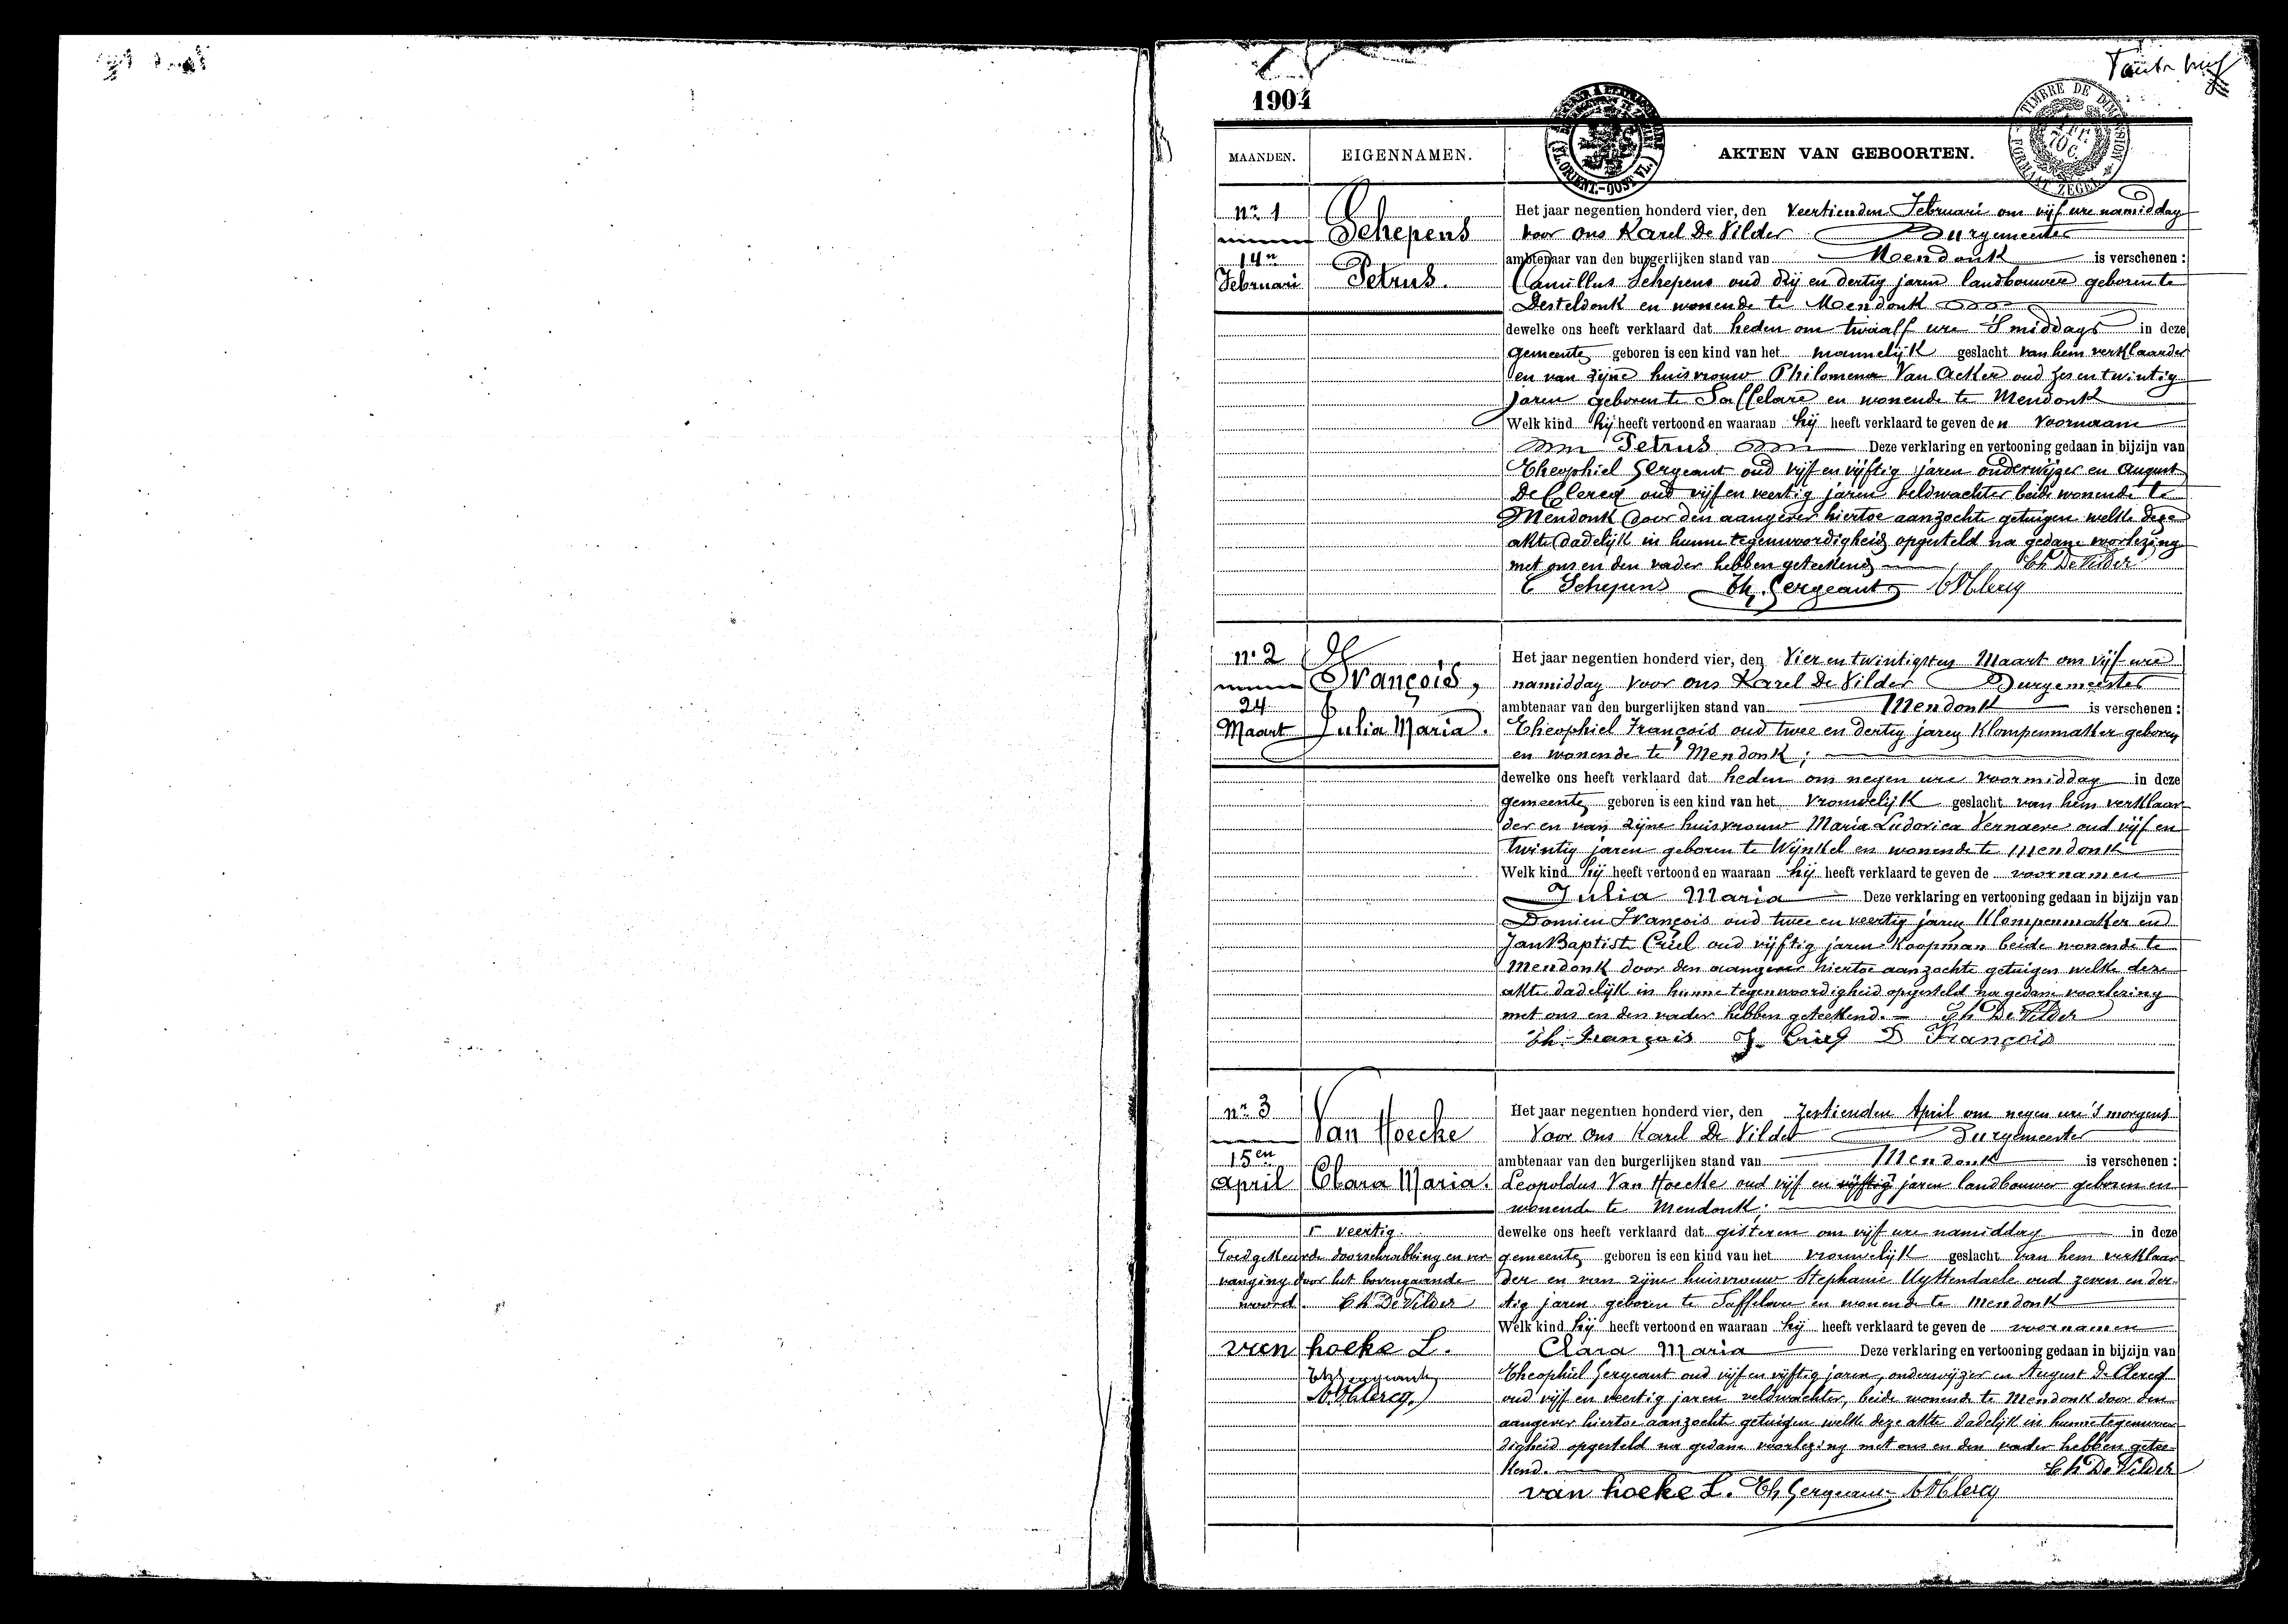 1904
TIMBRE DE DIMENSION
FORMAAT ZEGEL
FL. ORIENT.-OOST VL.
MAANDEN.
EIGENNAMEN.
AKTEN VAN GEBOORTEN.
nr 1
14n
Februari
Schepens
Petrus.
Het jaar negentien honderd vier, den Veertienden Februari om vijf ure namiddag
voor ons Karel De Vilder Burgemeester
ambtenaar van den burgerlijken stand van Mendonk is verschenen :
Camillus Schepens oud drij en dertig jaren landbouwer geboren te
Desteldonk en wonende te Mendonk
dewelke ons heeft verklaard dat heden om twaalf ure 's middags in deze
gemeente geboren is een kind van het mannelijk geslacht van hem verklaarder
en van zijne huisvrouw Philomena Van Acker oud zes en twintig
jaren geboren te Saffelare en wonende te Mendonk
Welk kind hij heeft vertoond en waaraan hij heeft verklaard te geven den voornaam
Petrus Deze verklaring en vertooning gedaan in bijzijn van
Theophiel Sergeant oud vijf en vijftig jaren onderwijzer en August
De Clercq oud vijf en veertig jaren veldwachter beide wonende te
Mendonk door den aangever hiertoe aanzochte getuigen welke deze
akte dadelijk in hunne tegenwoordigheid opgesteld na gedane voorlezing
met ons en den vader hebben geteekend Ch De Vilder
C Schepens Th. Sergeant A DClercq
nr 2
24
Maart
François,
Julia Maria.
Het jaar negentien honderd vier, den Vier en twintigsten Maart om vijf ure
namiddag voor ons Karel De Vilder Burgemeester
ambtenaar van den burgerlijken stand van Mendonk is verschenen :
Theophiel François oud twee en dertig jaren Klompenmaker geboren
en wonende te Mendonk ;
dewelke ons heeft verklaard dat heden om negen ure voormiddag in deze
gemeente geboren is een kind van het vrouwelijk geslacht van hem verklaar-
der en van zijne huisvrouw Maria Ludovica Vernaeve oud vijf en
twintig jaren geboren te Wijnkel en wonende te Mendonk
Welk kind hij heeft vertoond en waaraan hij heeft verklaard te geven de voornamen
Julia Maria Deze verklaring en vertooning gedaan in bijzijn van
Domien François oud twee en veertig jaren Klompenmaker en
Jan Baptist Criel oud vijftig jaren Koopman beide wonende te
Mendonk door den aangever hiertoe aanzochte getuigen welke deze
akte dadelijk in hunne tegenwoordigheid opgesteld na gedane voorlezing
met ons en den vader hebben geteekend. Ch De Vilder
Th. François J. Criel D François
nr 3
15en
April
Van Hoecke
Clara Maria.
Het jaar negentien honderd vier, den Zestienden April om negen ure 's morgens
Voor Ons Karel De Vilder Burgemeester
ambtenaar van den burgerlijken stand van Mendonk is verschenen :
Leopoldus Van Hoecke oud vijf en vijftig jaren landbouwer geboren en
wonende te Mendonk ;
dewelke ons heeft verklaard dat gisteren om vijf ure namiddag in deze
gemeente geboren is een kind van het vrouwelijk geslacht van hem verklaar-
der en van zijne huisvrouw Stephanie Uyttendaele oud zeven en der-
tig jaren geboren te Saffelare en wonende te Mendonk
Welk kind hij heeft vertoond en waaraan hij heeft verklaard te geven de voornamen
Clara Maria Deze verklaring en vertooning gedaan in bijzijn van
Theophiel Sergeant oud vijf en vijftig jaren, onderwijzer en August De Clercq
oud vijf en veertig jaren veldwachter, beide wonende te Mendonk door den
aangever hiertoe aanzochte getuigen welke deze akte dadelijk in hunne tegenwoor-
digheid opgesteld na gedane voorlezing met ons en den vader hebben getee-
kend. Ch De Vilder
van hoeke L. Th Sergeant A DClercq
veertig.
Goedgekeurde doorschrabbing en ver-
vanging door het bovengaande
woord. Ch De Vilder
van hoeke L.
Th Sergeant
A DClercq.